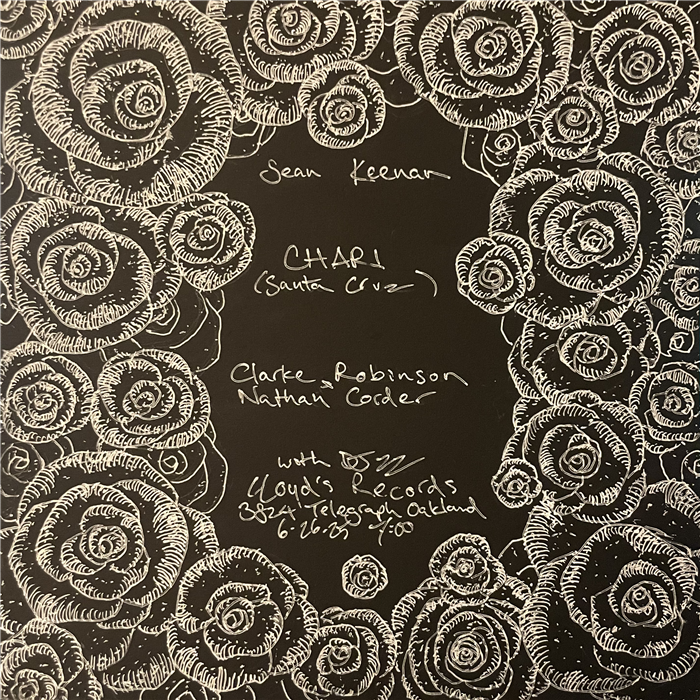 Sean Keenan
CHARI
(Santa Cruz)
Clarke Robinson
Nathan Corder
with
Lloyd's Records
3824 Telegraph Oakland
6.26.25 7:00